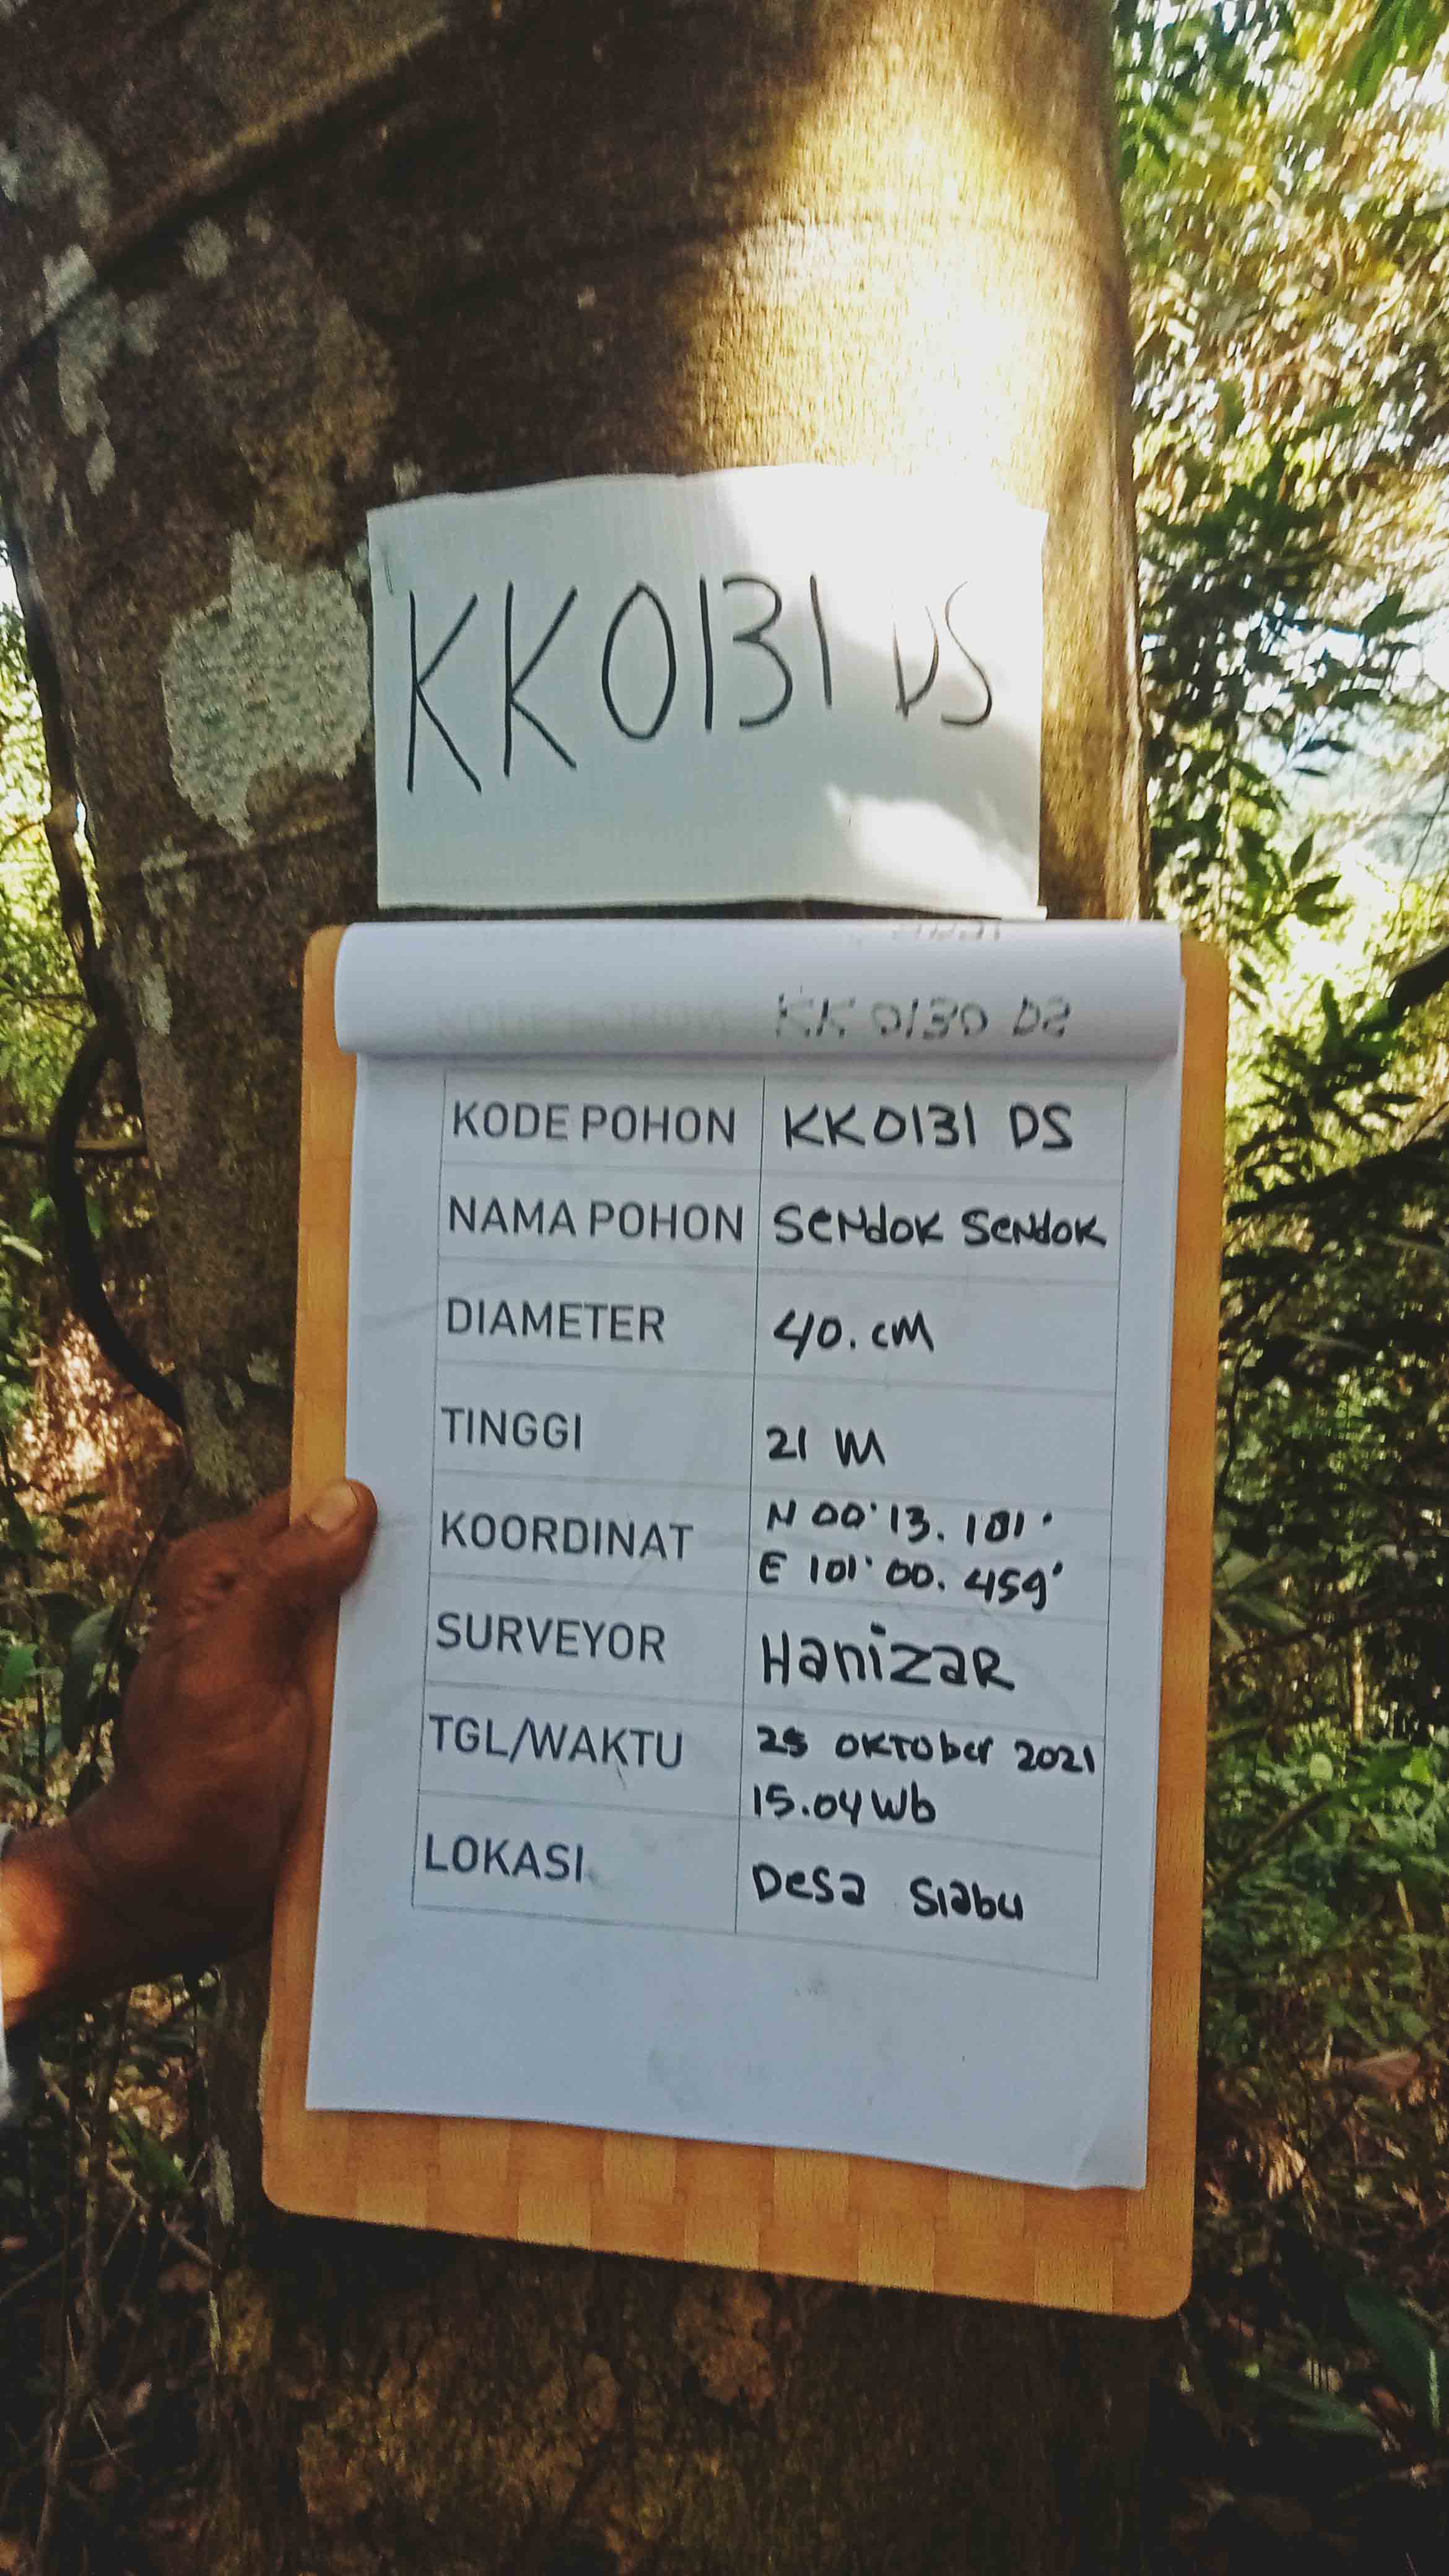 KK0131 DS
KK 0130 DS
KODE POHON KK0131 DS
NAMA POHON Sendok Sendok
DIAMETER 40. cm
TINGGI 21 M
KOORDINAT N 00° 13. 101'
E 101° 00. 459'
SURVEYOR Hanizar
TGL/WAKTU 25 Oktober 2021
15.04 Wb
LOKASI Desa Siabu